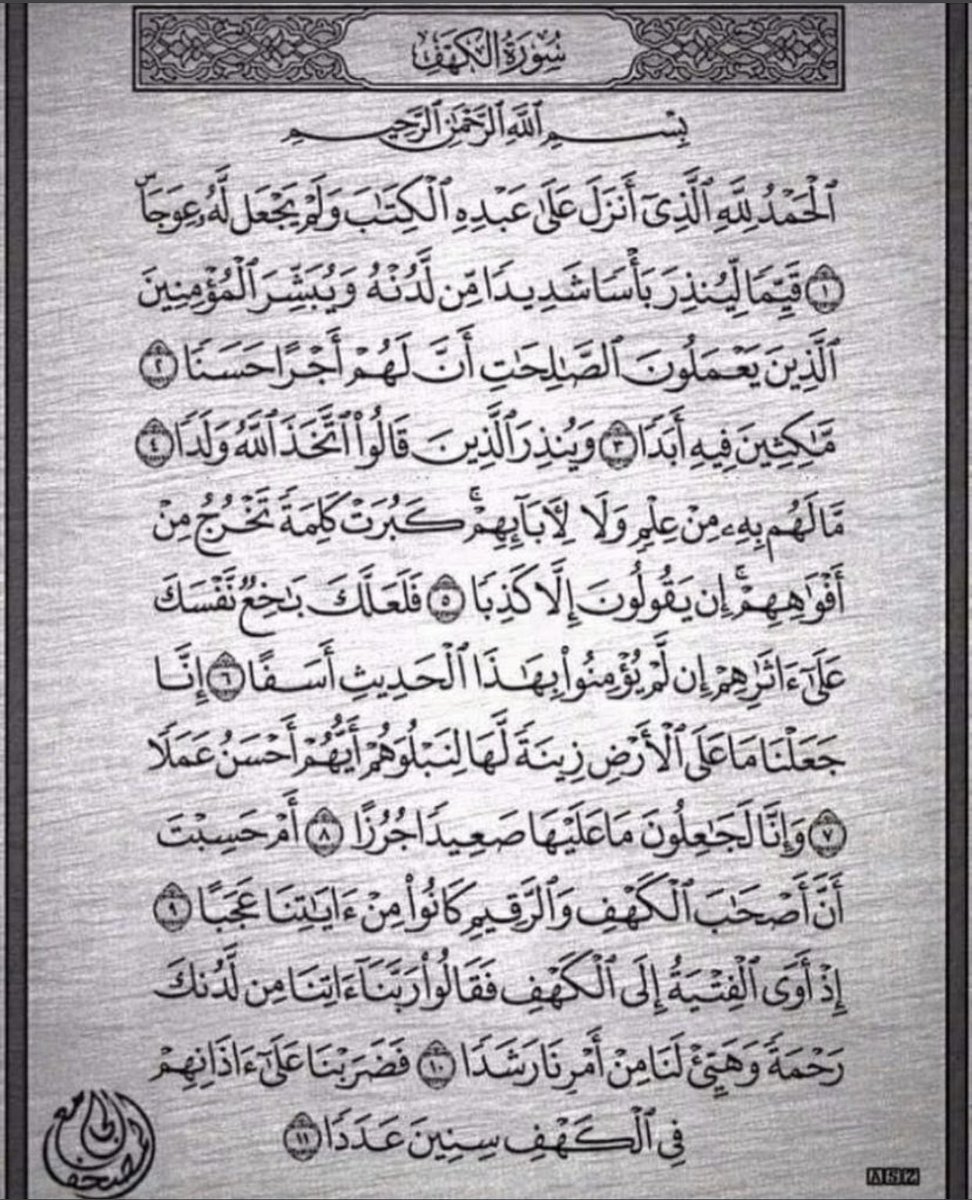 سُورَةُ الكَهْفِ
بِسْمِ ٱللَّهِ ٱلرَّحْمَٰنِ ٱلرَّحِيمِ
ٱلْحَمْدُ لِلَّهِ ٱلَّذِىٓ أَنزَلَ عَلَىٰ عَبْدِهِ ٱلْكِتَٰبَ وَلَمْ يَجْعَل لَّهُۥ عِوَجَاۜ
﴿١﴾ قَيِّمًا لِّيُنذِرَ بَأْسًا شَدِيدًا مِّن لَّدُنْهُ وَيُبَشِّرَ ٱلْمُؤْمِنِينَ
ٱلَّذِينَ يَعْمَلُونَ ٱلصَّٰلِحَٰتِ أَنَّ لَهُمْ أَجْرًا حَسَنًا ﴿٢﴾
مَّٰكِثِينَ فِيهِ أَبَدًا ﴿٣﴾ وَيُنذِرَ ٱلَّذِينَ قَالُوا۟ ٱتَّخَذَ ٱللَّهُ وَلَدًا ﴿٤﴾
مَّا لَهُم بِهِۦ مِنْ عِلْمٍ وَلَا لِأٓبَآئِهِمْ ۚ كَبُرَتْ كَلِمَةً تَخْرُجُ مِنْ
أَفْوَٰهِهِمْ ۚ إِن يَقُولُونَ إِلَّا كَذِبًا ﴿٥﴾ فَلَعَلَّكَ بَٰخِعٌ نَّفْسَكَ
عَلَىٰٓ ءَاثَٰرِهِمْ إِن لَّمْ يُؤْمِنُوا۟ بِهَٰذَا ٱلْحَدِيثِ أَسَفًا ﴿٦﴾ إِنَّا
جَعَلْنَا مَا عَلَى ٱلْأَرْضِ زِينَةً لَّهَا لِنَبْلُوَهُمْ أَيُّهُمْ أَحْسَنُ عَمَلًا
﴿٧﴾ وَإِنَّا لَجَٰعِلُونَ مَا عَلَيْهَا صَعِيدًا جُرُزًا ﴿٨﴾ أَمْ حَسِبْتَ
أَنَّ أَصْحَٰبَ ٱلْكَهْفِ وَٱلرَّقِيمِ كَانُوا۟ مِنْ ءَايَٰتِنَا عَجَبًا ﴿٩﴾
إِذْ أَوَى ٱلْفِتْيَةُ إِلَى ٱلْكَهْفِ فَقَالُوا۟ رَبَّنَآ ءَاتِنَا مِن لَّدُنكَ
رَحْمَةً وَهَيِّئْ لَنَا مِنْ أَمْرِنَا رَشَدًا ﴿١٠﴾ فَضَرَبْنَا عَلَىٰٓ ءَاذَانِهِمْ
فِى ٱلْكَهْفِ سِنِينَ عَدَدًا ﴿١١﴾
ASZ